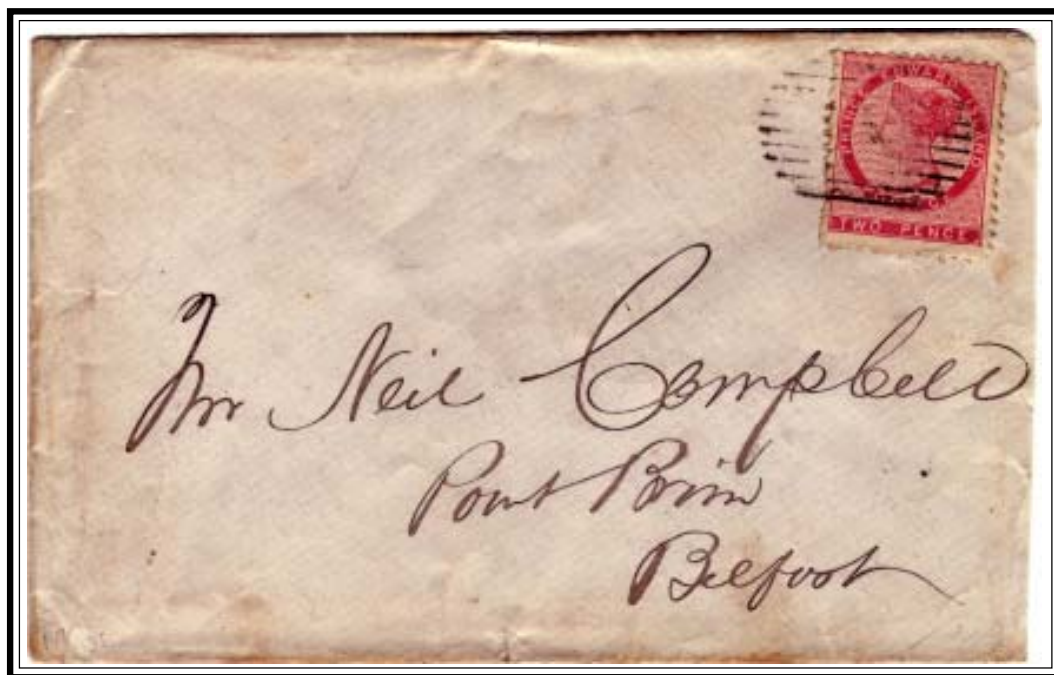 PRINCE EDWARD ISLAND
TWO PENCE
Mr Neil Campbell
Point Prim
Belfast